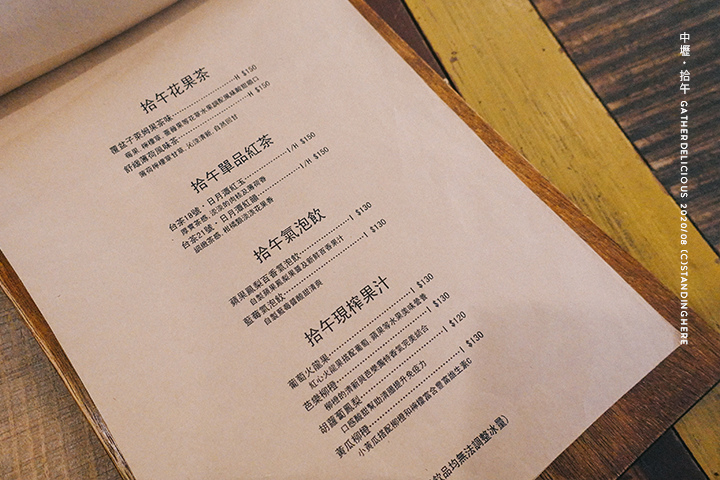 拾午花果茶
覆盆子萊姆果茶味 H $150
莓果, 檸檬草, 薔薇果等花草水果調配風味酸甜順口
舒緩薄荷風味茶 H $150
薄荷檸檬草甘草, 沁涼清新, 自然回甘
拾午單品紅茶
台茶18號・日月潭紅玉 I/H $150
厚實茶感, 淡淡的肉桂及薄荷香
台茶21號・日月潭紅韻 I/H $150
細緻茶感, 柑橘類淡淡花果香
拾午氣泡飲
蘋果鳳梨百香氣泡飲 I $130
自製蘋果鳳梨果醬及新鮮百香果汁
藍莓氣泡飲 I $130
自製藍莓醬酸甜清爽
拾午現榨果汁
葡萄火龍果 I $130
紅心火龍果搭配葡萄, 蘋果等水果美味營養
芭樂柳橙 I $130
柳橙的清新與芭樂獨特香氣完美結合
胡蘿蔔鳳梨 I $120
口感酸甜幫助消通提升免疫力
黃瓜柳橙 I $130
小黃瓜搭配柳橙和檸檬富含豐富維生素C
飲品均無法調整冰量)
中壢・拾午 GATHERDELICIOUS 2020/08 (C)STANDINGHERE